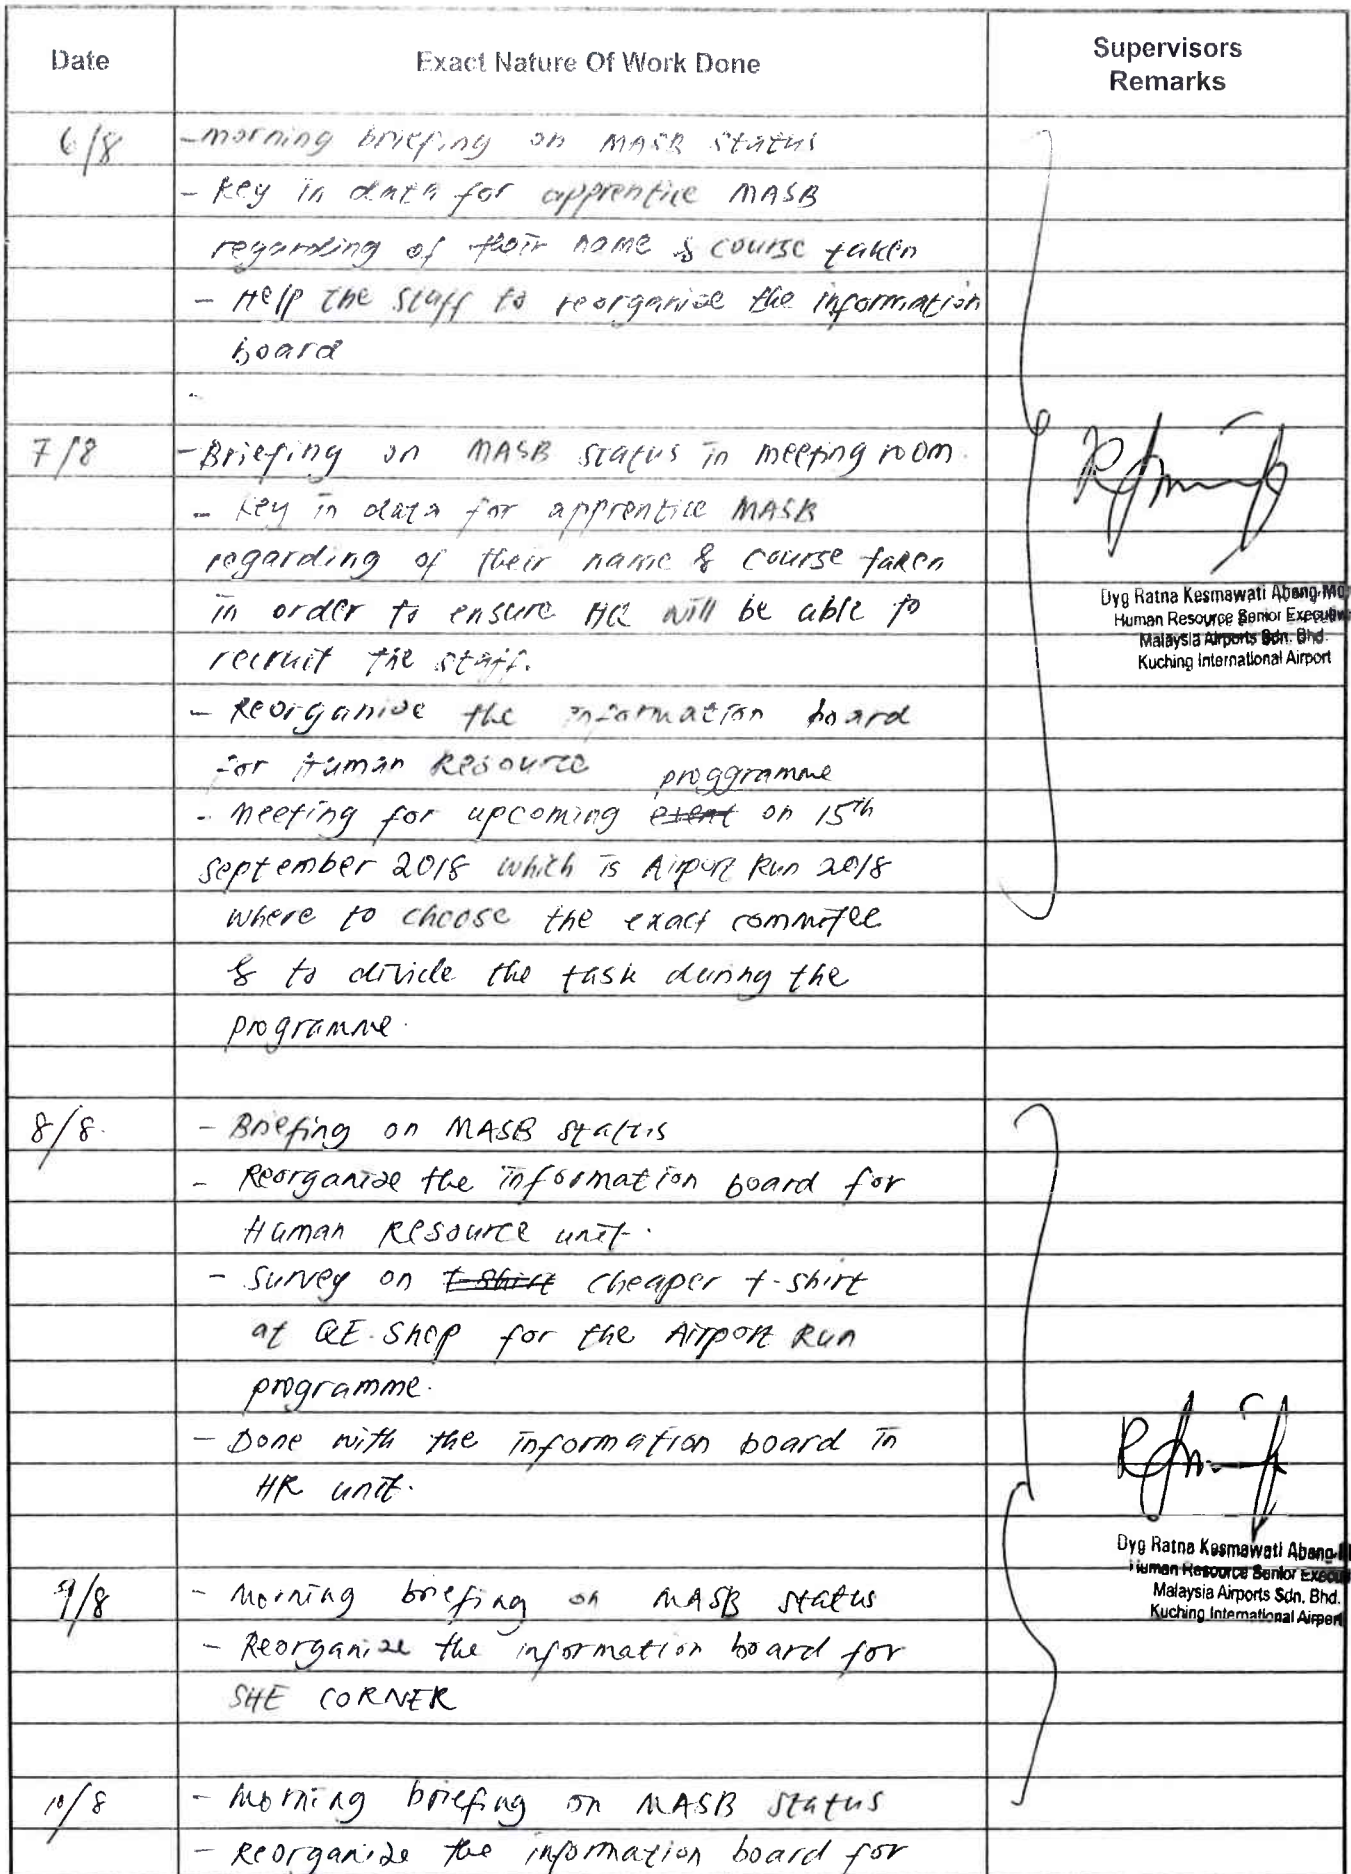 Date
Exact Nature Of Work Done
Supervisors
Remarks
6/8
- morning briefing on MASB status
- key in data for apprentice MASB
regarding of their name & course taken
- Help the staff to reorganize the information
board
-
7/8
- Briefing on MASB status in meeting room.
- key in data for apprentice MASB
regarding of their name & course taken
in order to ensure HQ will be able to
recruit the staff.
- Reorganize the information board
for Human Resource
proggramme
- Meeting for upcoming event on 15th
September 2018 which is Airport Run 2018
where to choose the exact commitee
& to divide the task during the
programme.
Dyg Ratna Kesmawati Abang
Human Resource Senior Executive
Malaysia Airports Sdn. Bhd.
Kuching International Airport
8/8.
- Briefing on MASB status
- Reorganize the information board for
Human Resource unit.
- Survey on t-shirt cheaper t-shirt
at QE. Shop for the Airport Run
programme.
- Done with the information board in
HR unit.
9/8
- Morning briefing on MASB status
- Reorganize the information board for
SHE CORNER
Dyg Ratna Kesmawati Abang
Human Resource Senior
Malaysia Airports Sdn. Bhd.
Kuching International Airport
10/8
- Morning briefing on MASB status
- Reorganize the information board for